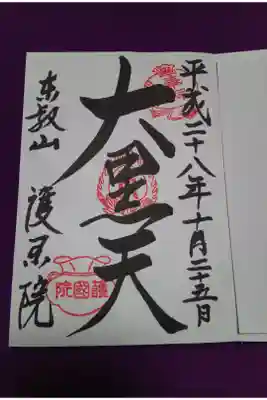 平成二十八年十月二十五日
大黒天
東叡山 護国院
護國院